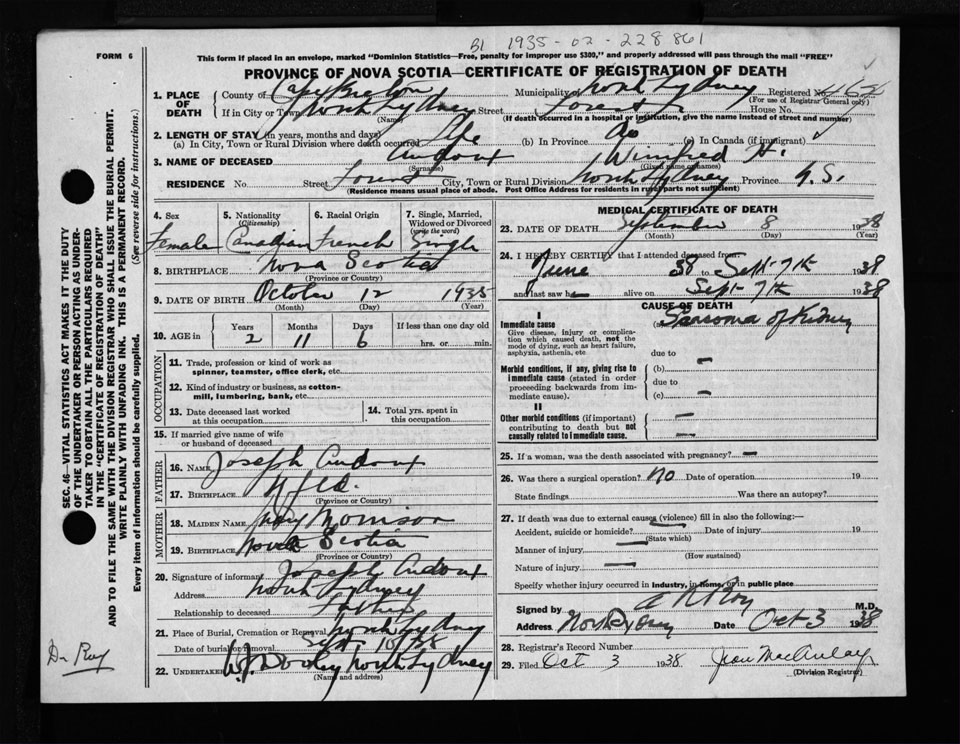 B1 1935-02-228861
FORM 6
This form if placed in an envelope, marked "Dominion Statistics—Free, penalty for improper use $300," and properly addressed will pass through the mail "FREE"
PROVINCE OF NOVA SCOTIA—CERTIFICATE OF REGISTRATION OF DEATH
1. PLACE OF DEATH County of Cape Breton Municipality North Sydney Registered No.
(For use of Registrar General only)
If in City or Town North Sydney Street Forest House No.
(Name) (If death occurred in a hospital or institution, give the name instead of street and number)
2. LENGTH OF STAY (in years, months and days)
(a) In City, Town or Rural Division where death occurred Life (b) In Province (c) In Canada (if immigrant)
3. NAME OF DECEASED Audoux Winifred H.
(Surname) (Given name or names)
RESIDENCE No Street Forest City, Town or Rural Division North Sydney Province N.S.
(Residence means usual place of abode. Post Office Address for residents in rural parts not sufficient)
4. Sex Female
5. Nationality (Citizenship) Canadian
6. Racial Origin French
7. Single, Married, Widowed or Divorced (write the word) Single
8. BIRTHPLACE Nova Scotia
(Province or Country)
9. DATE OF BIRTH October 12 1935
(Month) (Day) (Year)
10. AGE in Years Months Days If less than one day old
2 11 6 hrs. or min.
OCCUPATION
11. Trade, profession or kind of work as spinner, teamster, office clerk, etc.
12. Kind of industry or business, as cotton-mill, lumbering, bank, etc.
13. Date deceased last worked at this occupation
14. Total yrs. spent in this occupation
15. If married give name of wife or husband of deceased
FATHER
16. NAME Joseph Audoux
17. BIRTHPLACE
(Province or Country)
MOTHER
18. MAIDEN NAME Mary Morrison
19. BIRTHPLACE Nova Scotia
(Province or Country)
20. Signature of informant Joseph Audoux
Address North Sydney
Relationship to deceased Father
21. Place of Burial, Cremation or Removal North Sydney
Date of burial or removal Sept 10
22. UNDERTAKER W.J. Dooley North Sydney
(Name and address)
MEDICAL CERTIFICATE OF DEATH
23. DATE OF DEATH September 8 1938
(Month) (Day) (Year)
24. I HEREBY CERTIFY that I attended deceased from
June 38 to Sept 7th 1938
and last saw h alive on Sept 7th 1938
CAUSE OF DEATH
I
Immediate cause (a) Sarcoma of Kidney
Give disease, injury or complication which caused death, not the mode of dying, such as heart failure, asphyxia, asthenia, etc
due to
Morbid conditions, if any, giving rise to immediate cause (stated in order proceeding backwards from immediate cause).
(b) —
due to
(c) —
II
Other morbid conditions (if important) contributing to death but not causally related to immediate cause.
25. If a woman, was the death associated with pregnancy? —
26. Was there a surgical operation? No Date of operation 19
State findings Was there an autopsy?
27. If death was due to external causes (violence) fill in also the following:—
Accident, suicide or homicide? Date of injury 19
(State which)
Manner of injury —
(How sustained)
Nature of injury —
Specify whether injury occurred in industry, in home, or in public place
Signed by M.D.
Address North Sydney Date Oct 3 1938
28. Registrar's Record Number
29. Filed Oct 3 1938 Jean MacAulay
(Division Registrar)
SEC. 46—VITAL STATISTICS ACT MAKES IT THE DUTY
OF THE UNDERTAKER OR PERSON ACTING AS UNDER-
TAKER TO OBTAIN ALL THE PARTICULARS REQUIRED
IN THE "CERTIFICATE OF REGISTRATION OF DEATH"
AND TO FILE THE SAME WITH THE DIVISION REGISTRAR WHO SHALL ISSUE THE BURIAL PERMIT.
WRITE PLAINLY WITH UNFADING INK. THIS IS A PERMANENT RECORD.
Every item of information should be carefully supplied. (See reverse side for instructions.)
Dr Roy